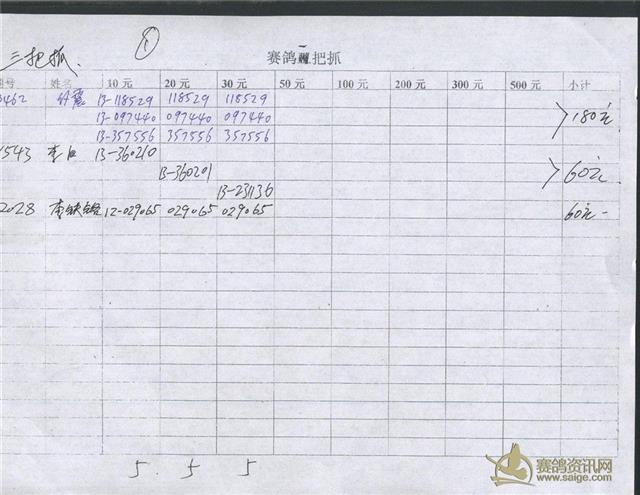 ①
三把抓
赛鸽 把抓
号 姓名 10元 20元 30元 50元 100元 200元 300元 500元 小计
3462 13-118529 118529 118529
13-097440 097440 097440 180元
13-357556 357556 357556
1543 13-360210
13-360201 60元
13-231136
2028 12-029065 029065 029065 60元-
5. 5 5
赛鸽资讯网
www.saige.com